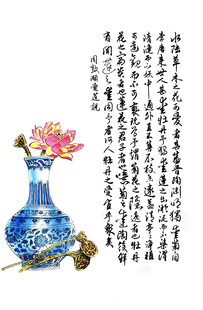 水陸草木之花可愛者甚蕃晉陶淵明獨愛菊自
李唐來世人甚愛牡丹予獨愛蓮之出淤泥而不染濯
清漣而不妖中通外直不蔓不枝香遠益清亭亭淨植
可遠觀而不可褻玩焉予謂菊花之隱逸者也牡丹
花之富貴者也蓮花之君子者也噫菊之愛陶後鮮
有聞蓮之愛同予者何人牡丹之愛宜乎眾矣
周敦頤愛蓮說